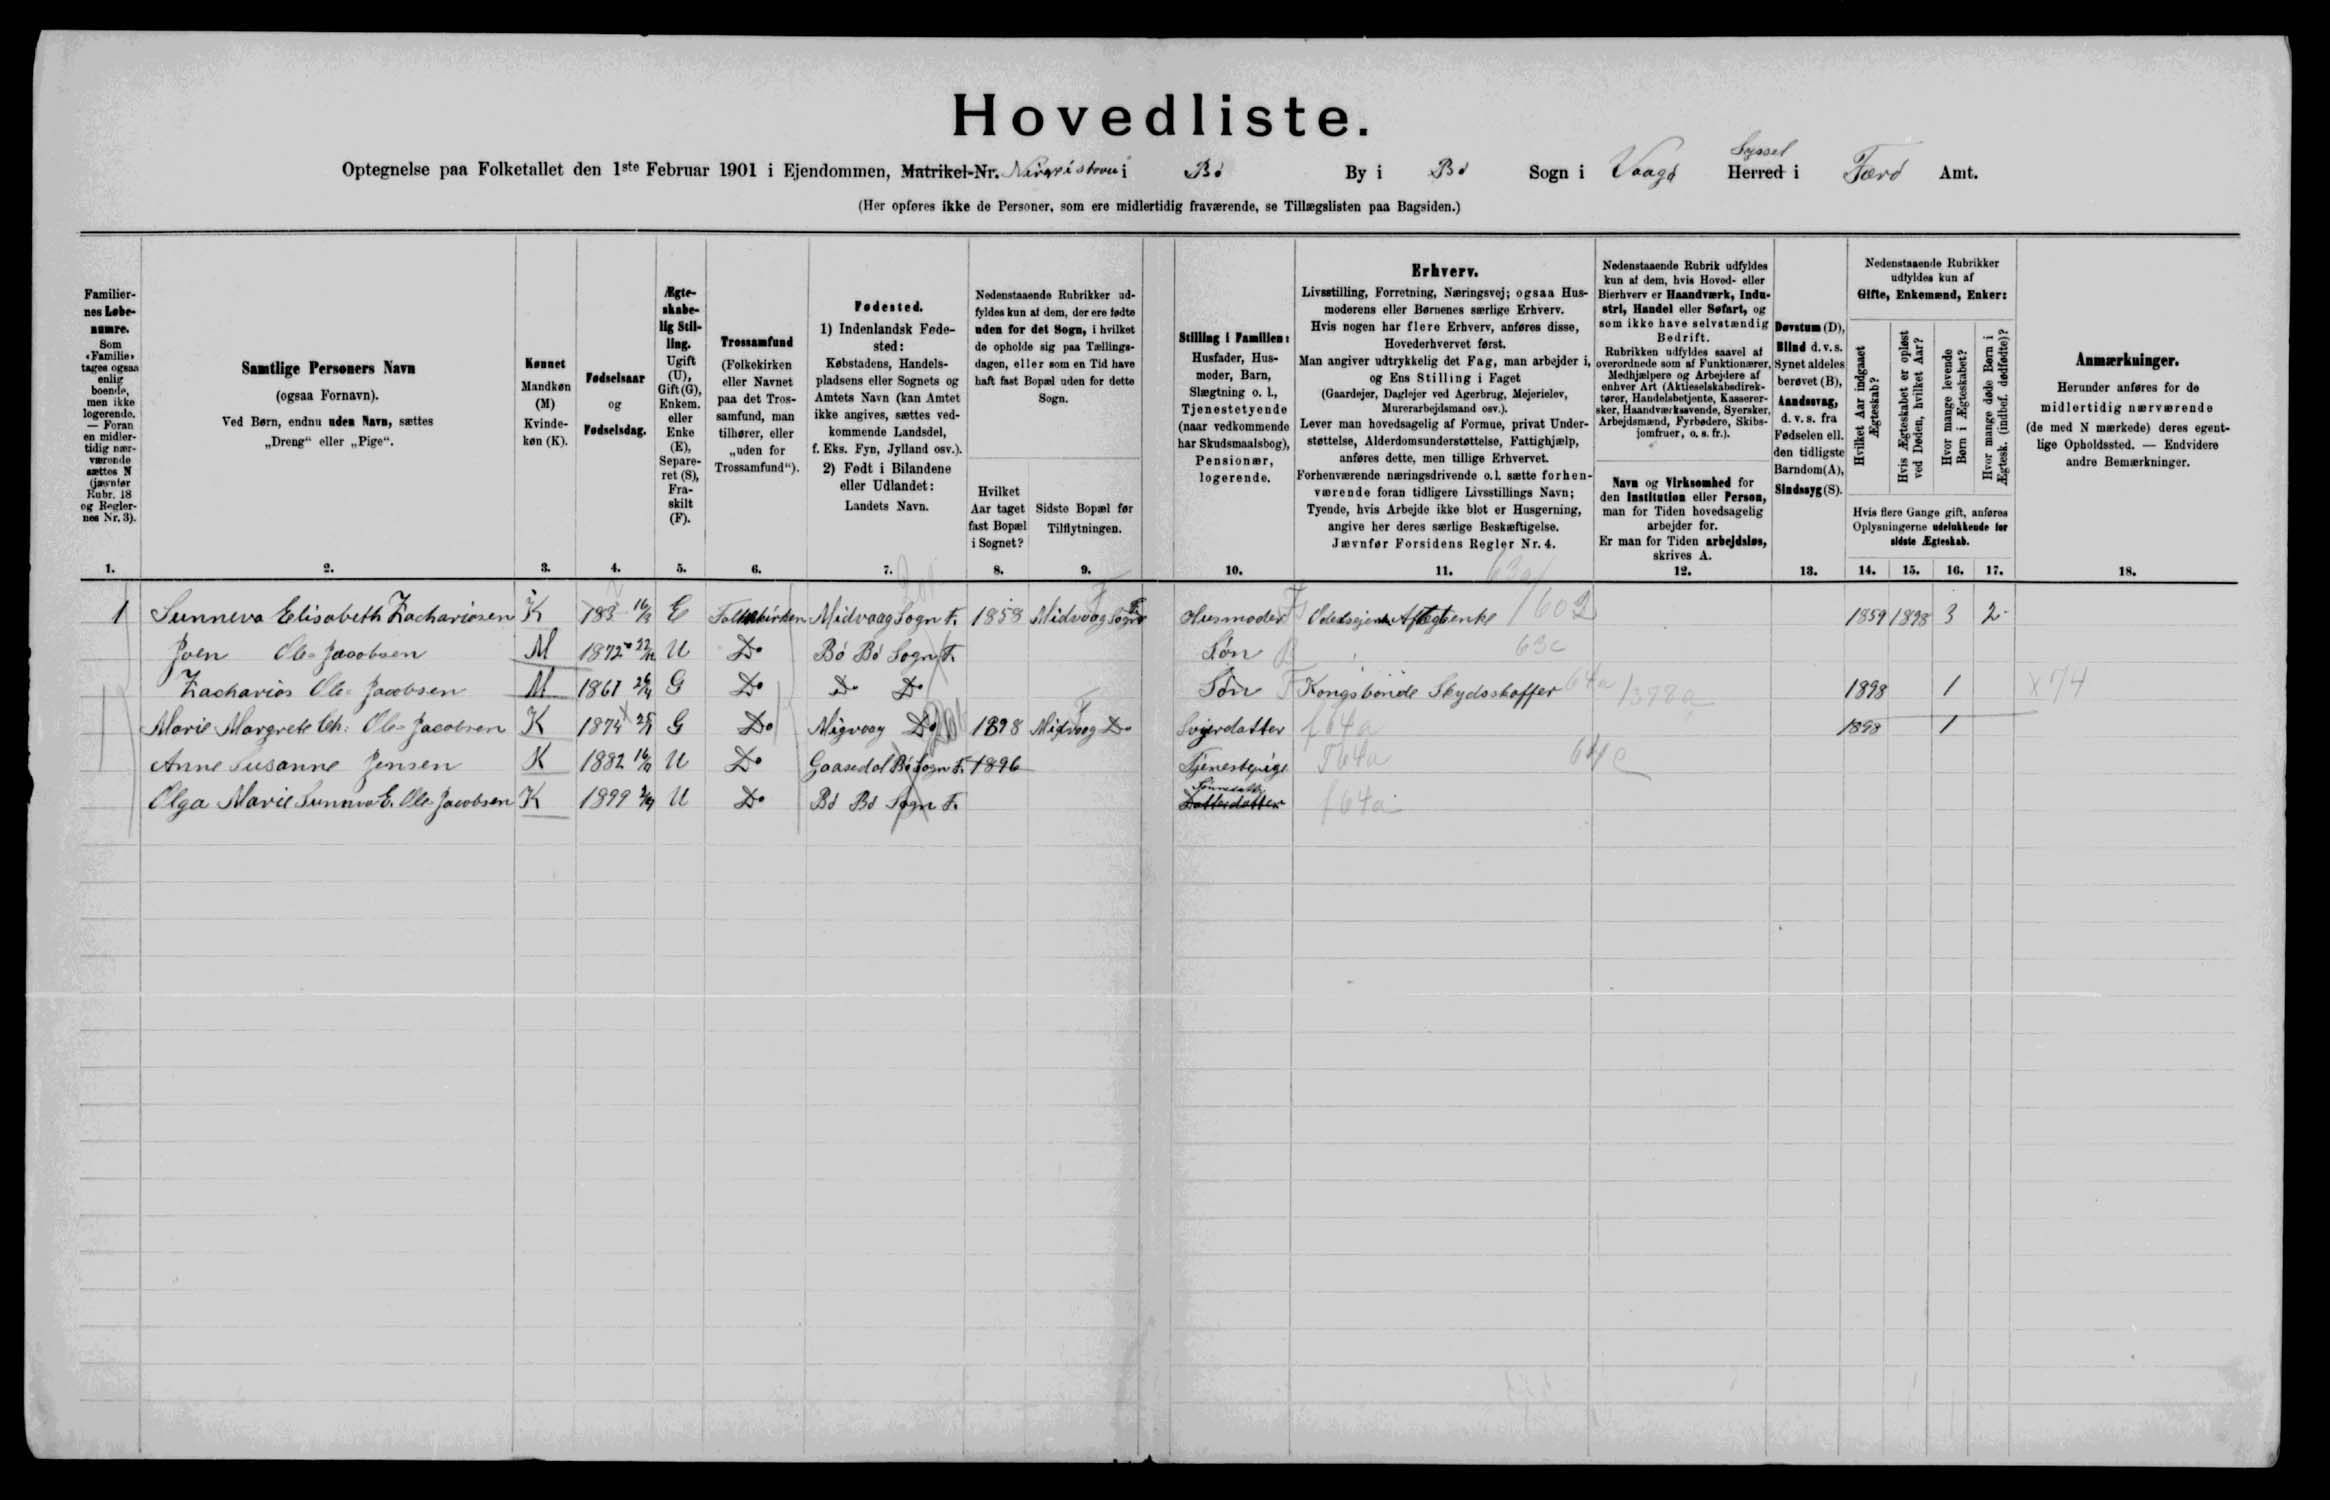 Hovedliste.
Syssel
Optegnelse paa Folketallet den 1ste Februar 1901 i Ejendommen, Matrikel-Nr. i Bø By i Bø Sogn i Vaagø Herred i Færø Amt.
(Her opføres ikke de Personer, som ere midlertidig fraværende, se Tillægslisten paa Bagsiden.)
Familier-
nes Løbe-
numre.
Som
«Familie»
tages ogsaa
enlig
boende,
men ikke
logerende.
— Foran
en midler-
tidig nær-
værende
sættes N
(jævnfør
Rubr. 18
og Regler-
nes Nr. 3).
Samtlige Personers Navn
(ogsaa Fornavn).
Ved Børn, endnu uden Navn, sættes
„Dreng“ eller „Pige“.
Kønnet
Mandkøn
(M)
Kvinde-
køn (K).
Fødselsaar
og
Fødselsdag.
Ægte-
skabe-
lig Stil-
ling.
Ugift
(U),
Gift (G),
Enkem.
eller
Enke
(E),
Separe-
ret (S),
Fra-
skilt
(F).
Trossamfund
(Folkekirken
eller Navnet
paa det Tros-
samfund, man
tilhører, eller
„uden for
Trossamfund“).
Fødested.
1) Indenlandsk Føde-
sted:
Købstadens, Handels-
pladsens eller Sognets og
Amtets Navn (kan Amtet
ikke angives, sættes ved-
kommende Landsdel,
f. Eks. Fyn, Jylland osv.).
2) Født i Bilandene
eller Udlandet:
Landets Navn.
Nedenstaaende Rubrikker ud-
fyldes kun af dem, der ere fødte
uden for det Sogn, i hvilket
de opholde sig paa Tællings-
dagen, eller som en Tid have
haft fast Bopæl uden for dette
Sogn.
Hvilket
Aar taget
fast Bopæl
i Sognet?
Sidste Bopæl før
Tilflytningen.
Stilling i Familien:
Husfader, Hus-
moder, Barn,
Slægtning o. l.,
Tjenestetyende
(naar vedkommende
har Skudsmaalsbog),
Pensionær,
logerende.
Erhverv.
Livsstilling, Forretning, Næringsvej; ogsaa Hus-
moderens eller Børnenes særlige Erhverv.
Hvis nogen har flere Erhverv, anføres disse,
Hovederhvervet først.
Man angiver udtrykkelig det Fag, man arbejder i,
og Ens Stilling i Faget
(Gaardejer, Daglejer ved Agerbrug, Mejerielev,
Murerarbejdsmand osv.).
Lever man hovedsagelig af Formue, privat Under-
støttelse, Alderdomsunderstøttelse, Fattighjælp,
anføres dette, men tillige Erhvervet.
Forhenværende næringsdrivende o. l. sætte forhen-
værende foran tidligere Livsstillings Navn;
Tyende, hvis Arbejde ikke blot er Husgerning,
angive her deres særlige Beskæftigelse.
Jævnfør Forsidens Regler Nr. 4.
Nedenstaaende Rubrik udfyldes
kun af dem, hvis Hoved- eller
Bierhverv er Haandværk, Indu-
stri, Handel eller Søfart, og
som ikke have selvstændig
Bedrift.
Rubrikken udfyldes saavel af
overordnede som af Funktionærer,
Medhjælpere og Arbejdere af
enhver Art (Aktieselskabsdirek-
tører, Handelsbetjente, Kasserer-
sker, Haandværkssvende, Syersker,
Arbejdsmænd, Fyrbødere, Skibs-
jomfruer, o. s. fr.).
Navn og Virksomhed for
den Institution eller Person,
man for Tiden hovedsagelig
arbejder for.
Er man for Tiden arbejdsløs,
skrives A.
Døvstum (D),
Blind d. v. s.
Synet aldeles
berøvet (B),
Aandssvag,
d. v. s. fra
Fødselen ell.
den tidligste
Barndom (A),
Sindssyg (S).
Nedenstaaende Rubrikker
udfyldes kun af
Gifte, Enkemænd, Enker:
Hvilket Aar indgaaet
Ægteskab?
Hvis Ægteskabet er opløst
ved Døden, hvilket Aar?
Hvor mange levende
Børn i Ægteskabet?
Hvor mange døde Børn i
Ægtesk. (indbef. dødfødte)?
Hvis flere Gange gift, anføres
Oplysningerne udelukkende for
sidste Ægteskab.
Anmærkninger.
Herunder anføres for de
midlertidig nærværende
(de med N mærkede) deres egent-
lige Opholdssted. — Endvidere
andre Bemærkninger.
1. 2. 3. 4. 5. 6. 7. 8. 9. 10. 11. 12. 13. 14. 15. 16. 17. 18.
1 Sunneva Elisabeth Zachariasen K 183 16/3 E Folkekirken Midvaag Sogn F. 1858 Midvaag Sogn F. Husmoder Aftægtsenke 1859 1898 3 2
Joen Ole-Jacobsen M 1872 U Do Bø Bø Sogn F. Søn 63c
Zacharias Ole-Jacobsen M 1861 G Do Do Do Søn Kongsbonde Skydsskaffer 64a 1898 1 x 74
Marie Margrete Ch. Ole-Jacobsen K 1874 G Do Migvaag Do 1898 Midvaag Do Svigerdatter 64a 1898 1
Anne Susanne Jensen K 1882 U Do Gaasedal Bø Sogn F. 1896 Tjenestepige 64a 64c
Sønnedatter
Olga Marie Sunneva E. Ole-Jacobsen K 1899 U Do Bø Bø Sogn F. Datterdatter 64a